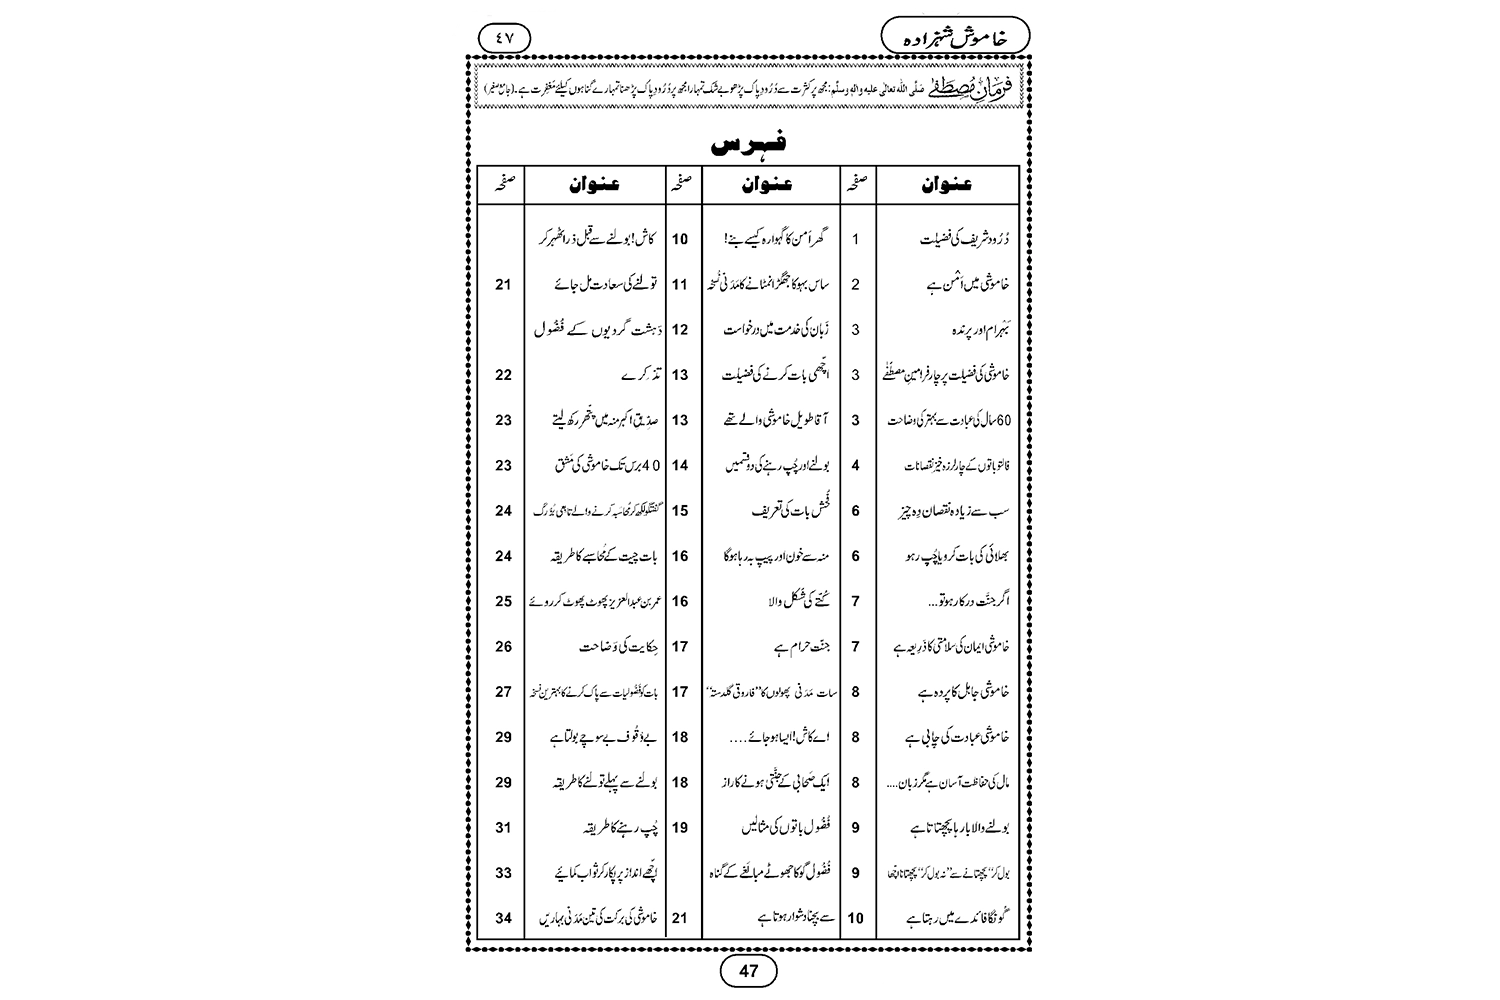 خاموش شہزادہ ٤٧
فرمانِ مصطفٰے صلَّی اللہ تعالیٰ علیہ واٰلہٖ وسلَّم: مجھ پر کثرت سے دُرُودِ پاک پڑھو بے شک تمہارا مجھ پر دُرُودِ پاک پڑھنا تمہارے گناہوں کیلئے مغفرت ہے۔ (جامع صغیر)
فہرس
عنوان صفحہ عنوان صفحہ عنوان صفحہ
دُرُود شریف کی فضیلت 1 گھر اَمن کا گہوارہ کیسے بنے! 10 کاش! بولنے سے قبل ذرا ٹھہر کر
خاموشی میں اَمْن ہے 2 ساس بہو کا جھگڑا نمٹانے کا مَدَنی نُسخہ 11 تولنے کی سعادت مل جائے 21
بَہرام اور پرندہ 3 زَبان کی خدمت میں درخواست 12 دَہشت گردیوں کے فُضُول
خاموشی کی فضیلت پر چار فرامینِ مصطَفٰے 3 اچّھی بات کرنے کی فضیلت 13 تذکرے 22
60 سال کی عبادت سے بہتر کی وضاحت 3 آقا طویل خاموشی والے تھے 13 صدّیقِ اکبر منہ میں پتّھر رکھ لیتے 23
فالتو باتوں کے چار لرزہ خیز نقصانات 4 بولنے اور چُپ رہنے کی دو قسمیں 14 40 برس تک خاموشی کی مَشق 23
سب سے زیادہ نقصان دِہ چیز 6 فُحْش بات کی تعریف 15 گفتگو لکھ کر مُحاسَبہ کرنے والے تابِعی بُزُرگ 24
بھلائی کی بات کرو یا چُپ رہو 6 منہ سے خون اور پیپ بہ رہا ہوگا 16 بات چیت کے مُحاسبے کا طریقہ 24
اگر جنَّت درکار ہو تو... 7 کُتّے کی شَکل والا 16 عمر بن عبدالعزیز پھوٹ پھوٹ کر روئے 25
خاموشی ایمان کی سلامتی کا ذَرِیعہ ہے 7 جنّت حرام ہے 17 حِکایت کی وَضاحت 26
خاموشی جاہل کا پردہ ہے 8 سات مَدَنی پھولوں کا ”فاروقی گلدستہ“ 17 بات کو فُضُولیات سے پاک کرنے کا بہترین نُسخہ 27
خاموشی عبادت کی چابی ہے 8 اے کاش! ایسا ہو جائے .... 18 بے وُقُوف بے سوچے بولتا ہے 29
مال کی حفاظت آسان ہے مگر زبان.... 8 ایک صَحابی کے جنّتی ہونے کا راز 18 بولنے سے پہلے تولنے کا طریقہ 29
بولنے والا بارہا پچھتاتا ہے 9 فُضُول باتوں کی مثالیں 19 چُپ رہنے کا طریقہ 31
بول کر ”پچھتانے سے“ نہ بول کر ”پچھتانا“ اچھا 9 فُضُول گو کا جھوٹے مبالَغے کے گناہ اچّھے انداز پر پکار کر ثواب کمائیے 33
گُونگا فائدے میں رہتا ہے 10 سے بچنا دشوار ہوتا ہے 21 خاموشی کی برکت کی تین مَدَنی بہاریں 34
47